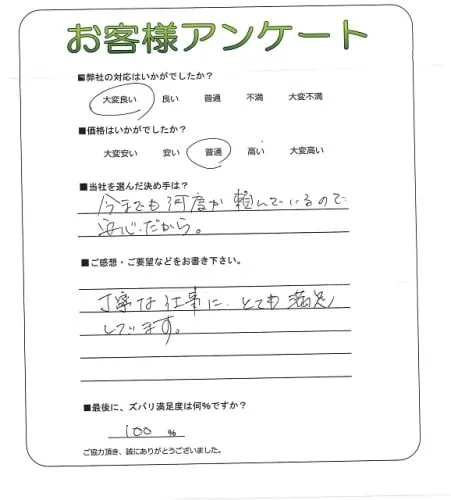 お客様アンケート
■弊社の対応はいかがでしたか？
大変良い 良い 普通 不満 大変不満
■価格はいかがでしたか？
大変安い 安い 普通 高い 大変高い
■当社を選んだ決め手は？
今までも何度か頼んでいるので
安心だから。
■ご感想・ご要望などをお書き下さい。
丁寧な仕事に、とても満足
しています。
■最後に、ズバリ満足度は何％ですか？
100 ％
ご協力頂き、誠にありがとうございました。